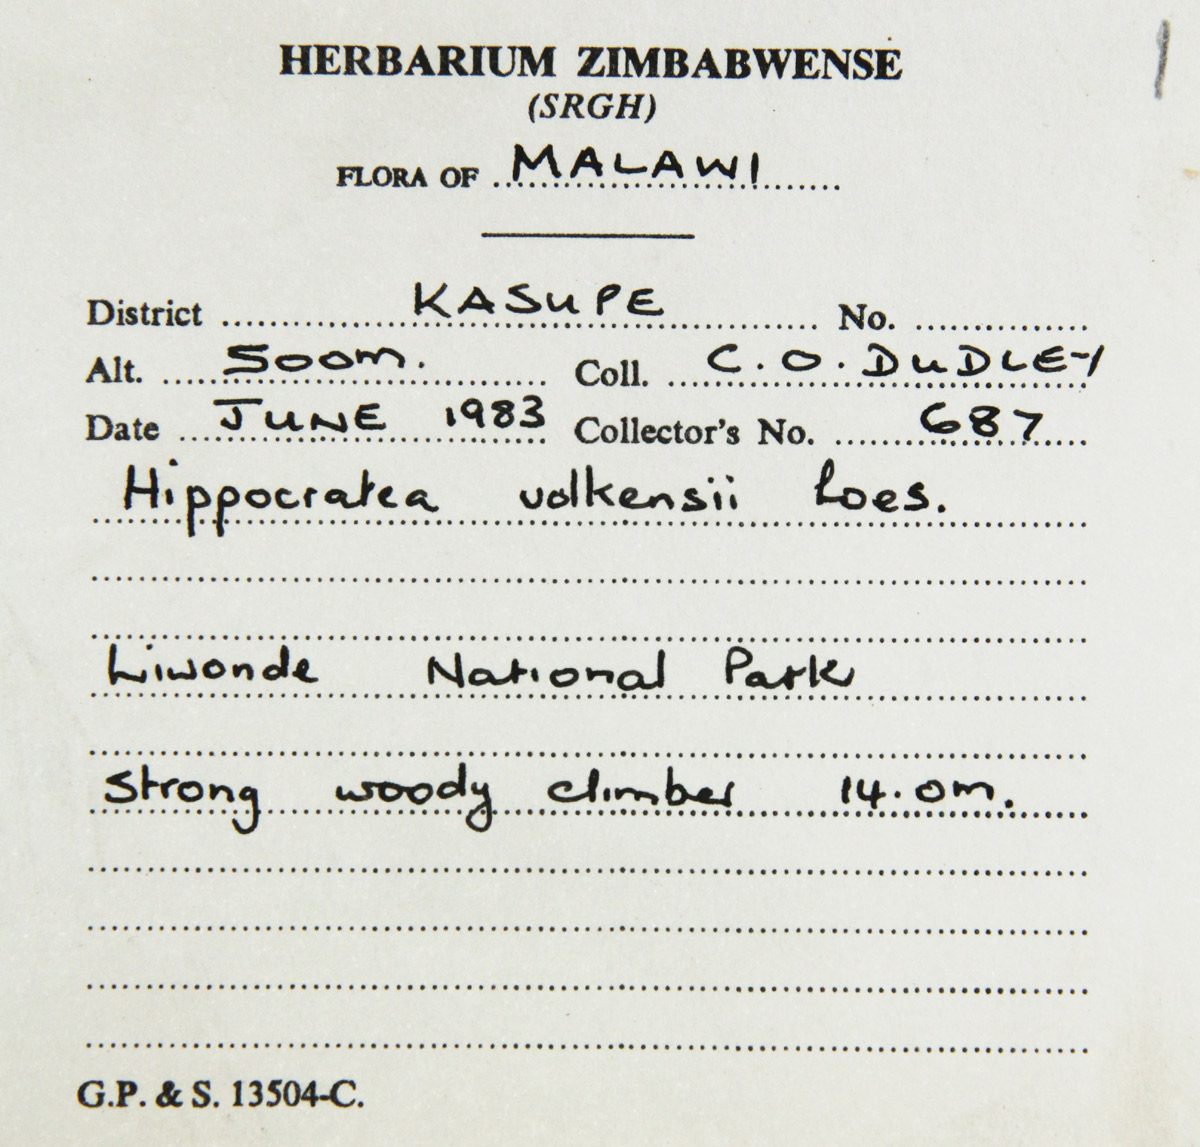 HERBARIUM ZIMBABWENSE
(SRGH)
FLORA OF MALAWI
District KASUPE No.
Alt. 500m. Coll. C.O. DUDLEY
Date JUNE 1983 Collector's No. 687
Hippocratea volkensii Loes.
Liwonde National Park
Strong woody climber 14.0m.
G.P. & S. 13504-C.